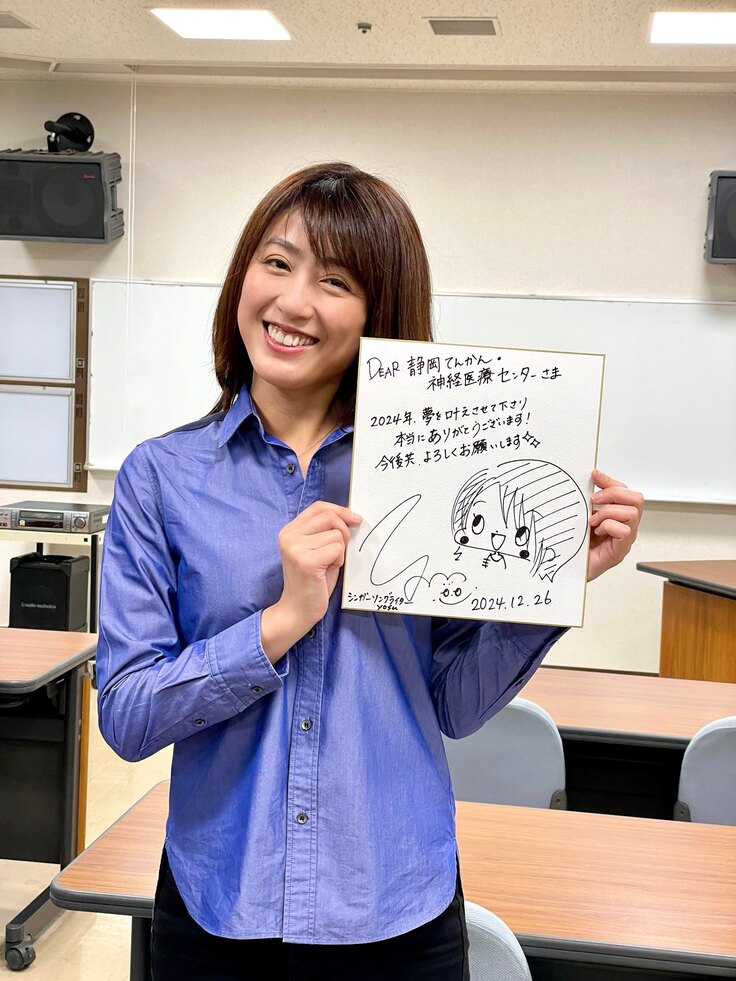 DEAR 静岡てんかん・
神経医療センターさま
2024年、夢を叶えさせて下さり
本当にありがとうございます!
今後共、よろしくお願いします
シンガーソングライター
yosu
2024.12.26
audio-technica